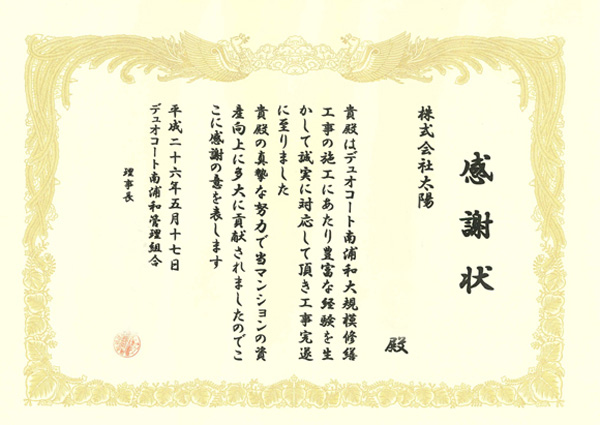 感謝状
株式会社太陽
殿
貴殿はデュオコート南浦和大規模修繕
工事の施工にあたり豊富な経験を生
かして誠実に対応して頂き工事完遂
に至りました
貴殿の真摯な努力で当マンションの資
産向上に多大に貢献されましたのでこ
こに感謝の意を表します
平成二十六年五月十七日
デュオコート南浦和管理組合
理事長